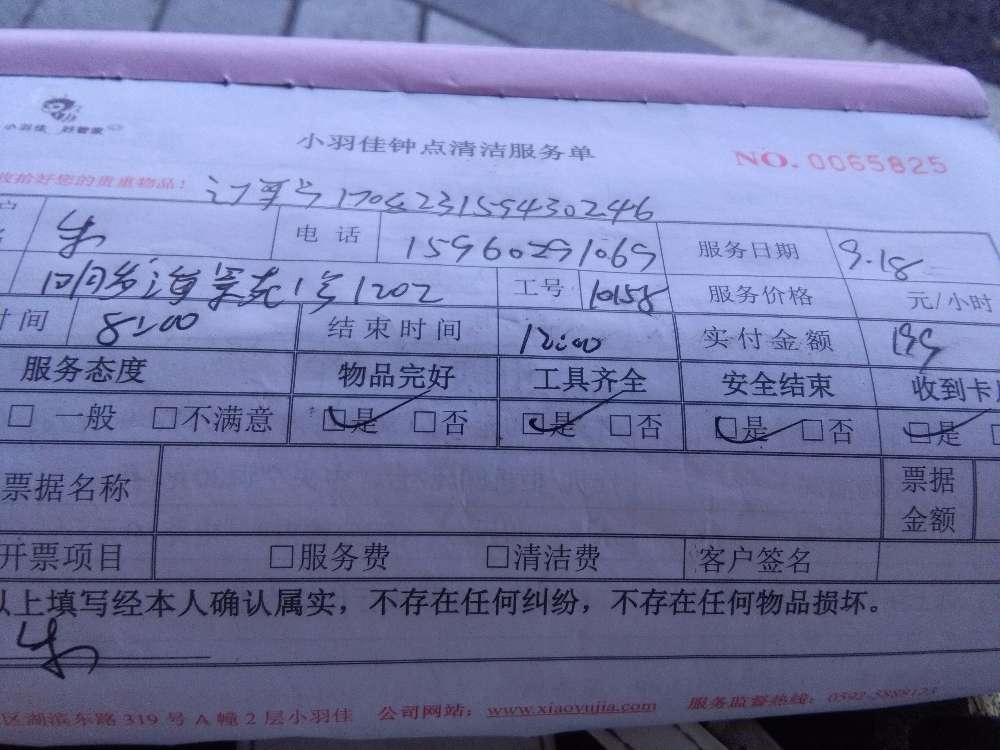 小羽佳 好管家
小羽佳钟点清洁服务单
NO. 0065825
收拾好您的贵重物品： 订单号170823159430246
户 朱 电话 15960291069 服务日期 9.18
1号1202 工号 10158 服务价格 元/小时
时间 8:00 结束时间 12:00 实付金额 199
服务态度 物品完好 工具齐全 安全结束 收到卡
□ 一般 □不满意 □是 □否 □是 □否 □是 □否 □是
票据名称 票据金额
开票项目 □服务费 □清洁费 客户签名
以上填写经本人确认属实，不存在任何纠纷，不存在任何物品损坏。
朱
区湖滨东路 319 号 A 幢 2 层小羽佳 公司网站：www.xiaoyujia.com 服务监督热线：0592-5888123